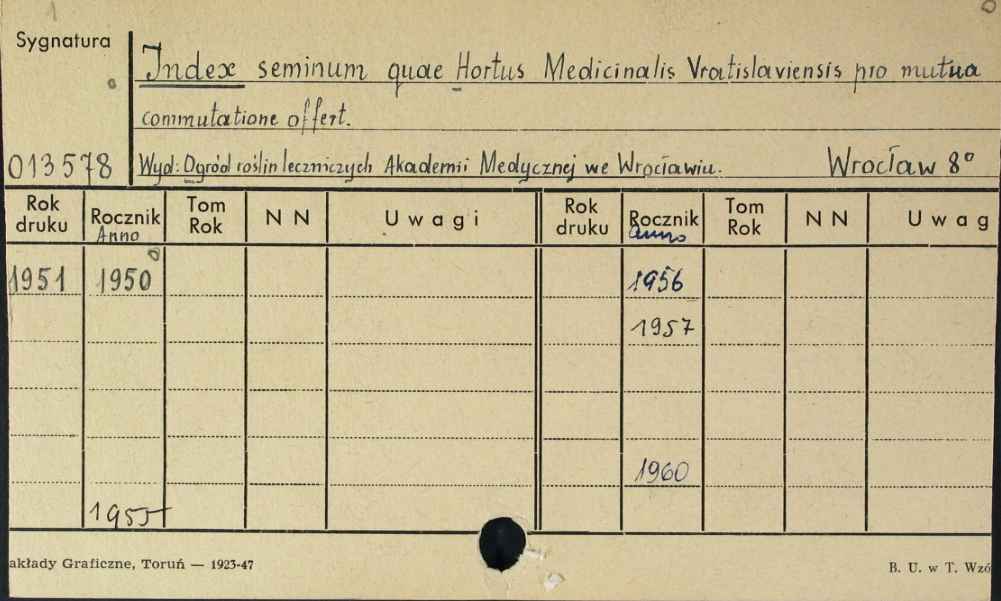 1
Sygnatura
Index seminum quae Hortus Medicinalis Vratislaviensis pro mutua
commutatione offert.
013578 Wyd: Ogród roślin leczniczych Akademii Medycznej we Wrocławiu. Wrocław 8°
Rok druku Rocznik Anno Tom Rok N N Uwagi Rok druku Rocznik Anno Tom Rok N N Uwag
1951 1950 1956
1957
1960
1955
akłady Graficzne, Toruń — 1923-47 B. U. w T. Wzó